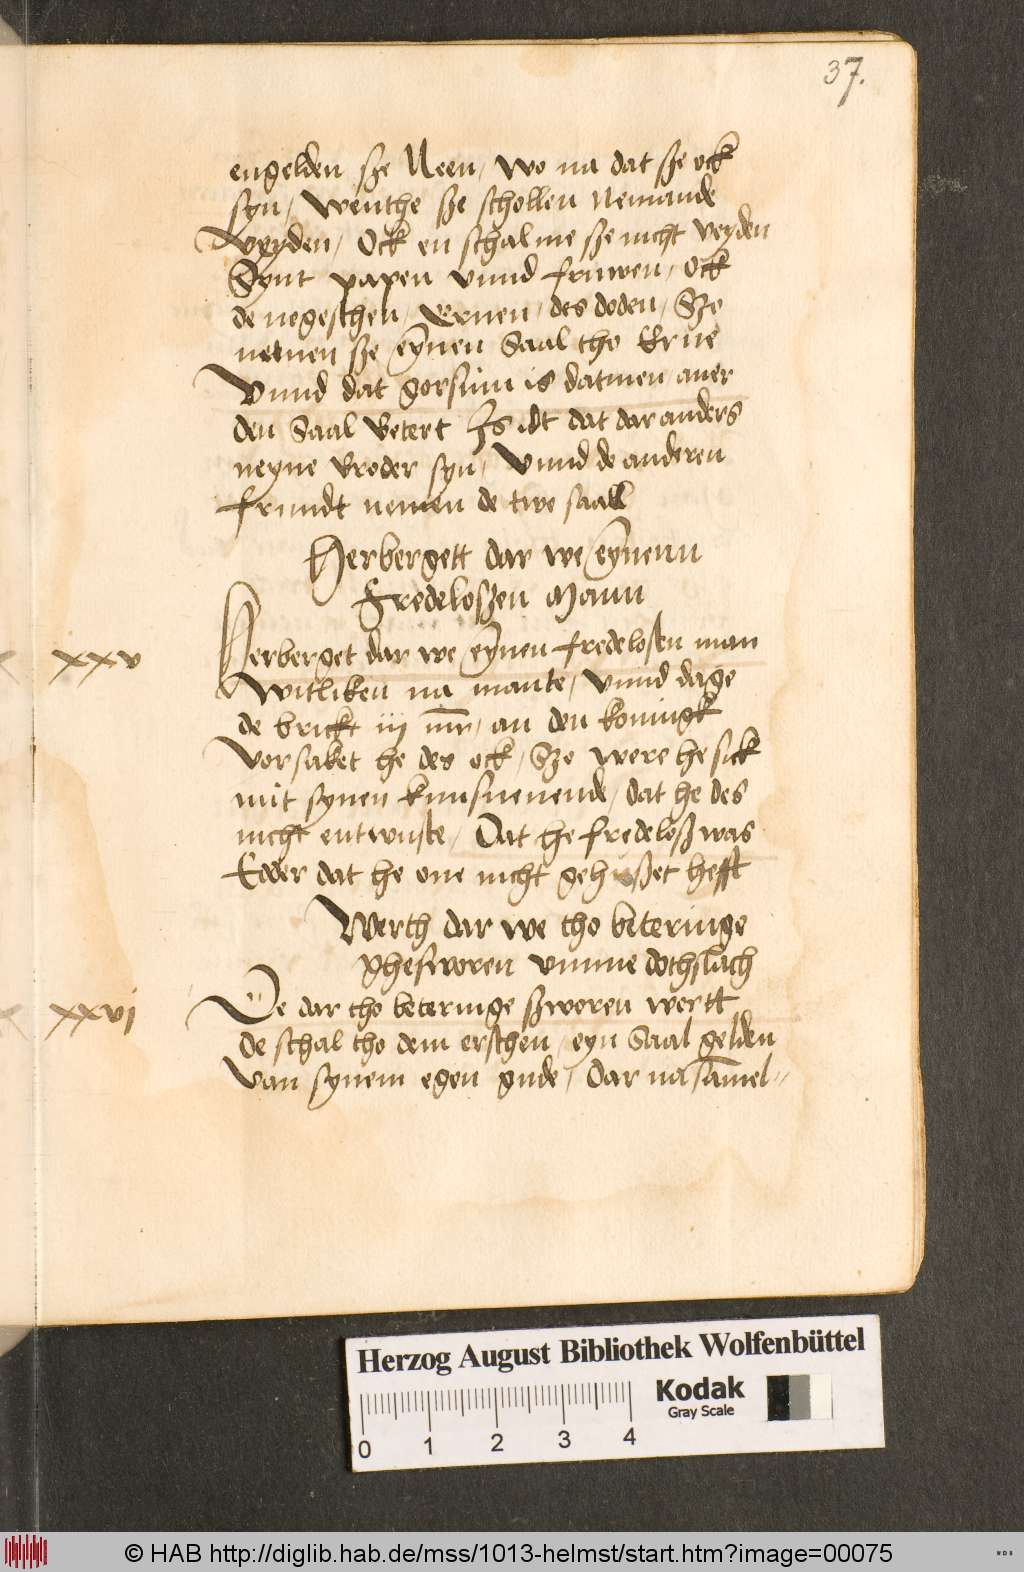 37.
engelden sze Neen, wo na dat sze ock
syn, wenthe sze schollen nemande
veyden, Ock en schalme sze nicht veyden
Synt papen vnnd fruwen, ock
de negeschen, Eruen, des doden, Sze
nemen sze eynen Saal tho Erue
Vnnd dat gorsum is datmen auer
den Saal betert Is idt dat dar anders
neyne broder syn, Vnnd de anderen
frundt nemen de twe saall
Herbergett dar we eynenn
Fredeloszen Mann
xxv
Herberget dar we eynen fredelosen man
Witliken na mante, Vnnd dage
de brickt iij mr, an den koningk
Vorsaket he des ock, Szo were he sick
mit synen kunsneuende, dat he des
nicht entwuste, Dat he fredelosz was
Edder dat he one nicht gehuszet hefft
Werth dar we tho beteringe
ghesworen vmme dothslach
xxvi
De dar tho beteringe szworen wertt
de schal tho dem erschen, eyn Saal gelden
van synem egen gude, Dar na samel-
Herzog August Bibliothek Wolfenbüttel
Kodak
Gray Scale
0 1 2 3 4
© HAB http://diglib.hab.de/mss/1013-helmst/start.htm?image=00075